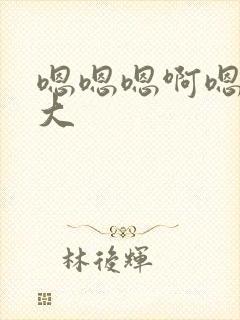 嗯嗯嗯啊嗯
大
林後輝